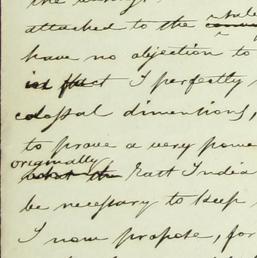 attached to the
have no objection to
I perfectly
colossal dimentions,
to prove a very powe
originally
East India
be necessary to keep
I now propose, for